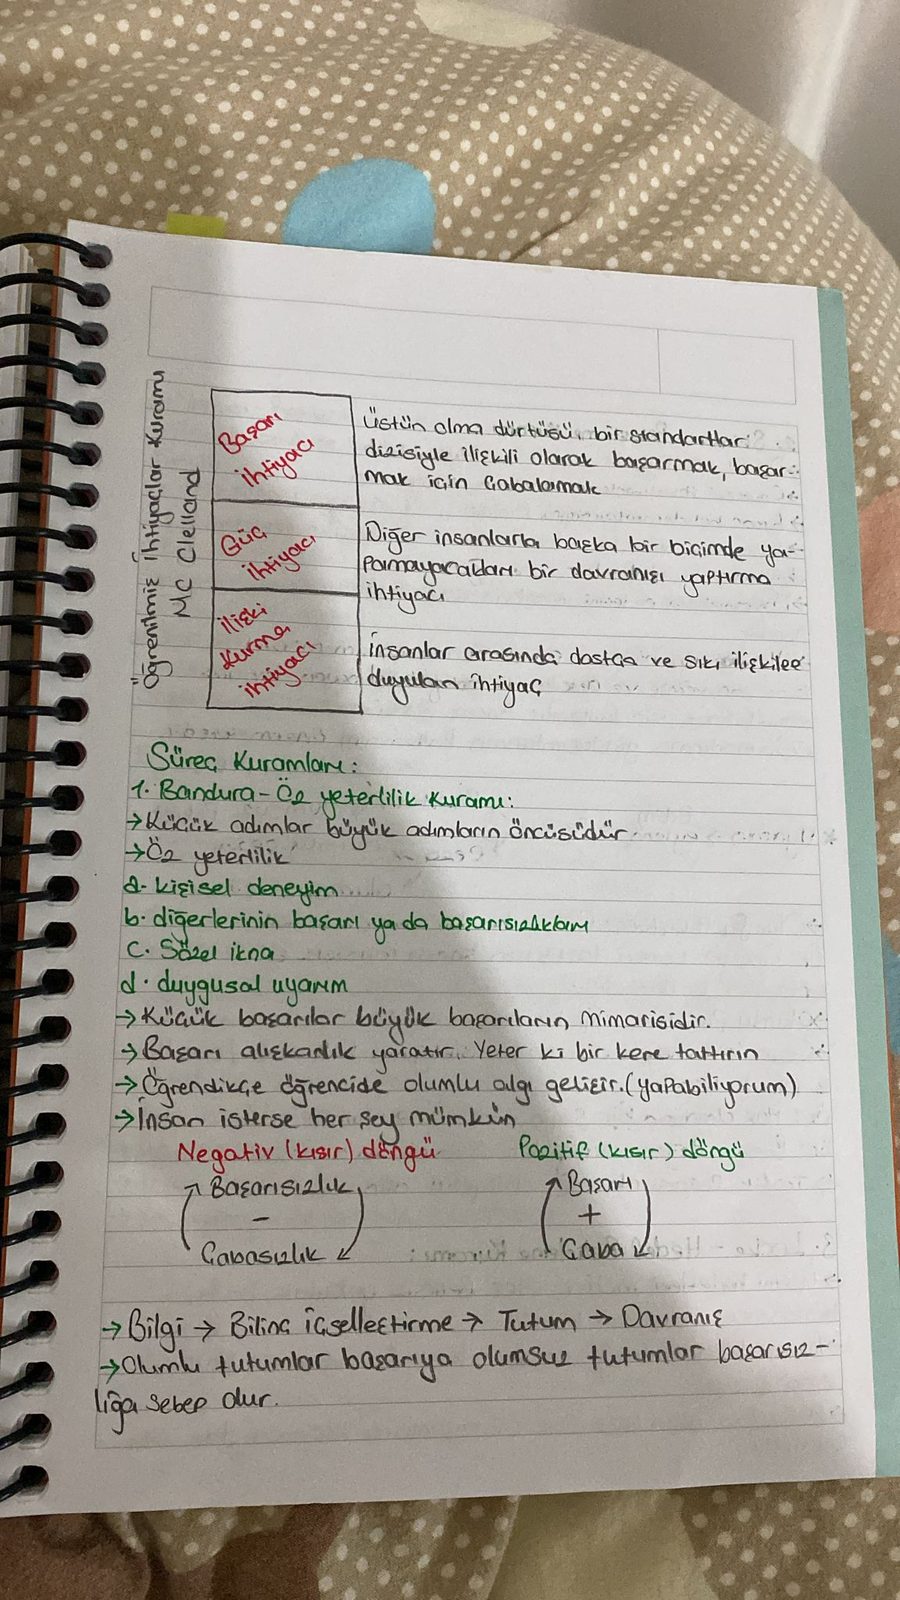 Öğrenilmiş İhtiyaçlar Kuramı
Mc Clelland
Başarı
ihtiyacı
Üstün olma dürtüsü, bir standartlar
dizisiyle ilişkili olarak başarmak, başar-
mak için çabalamak
Güç
ihtiyacı
Diğer insanlarla başka bir biçimde ya-
pamayacakları bir davranışı yaptırma
ihtiyacı
İlişki
kurma
ihtiyacı
İnsanlar arasında dostça ve sıkı ilişkilere
duyulan ihtiyaç
Süreç Kuramları:
1. Bandura - Öz yeterlilik Kuramı:
→ Küçük adımlar büyük adımların öncüsüdür
→ Öz yeterlilik
a- kişisel deneyim
b. diğerlerinin başarı ya da başarısızlıkları
c. Sözel ikna
d. duygusal uyarım
→ Küçük başarılar büyük başarıların mimarisidir.
→ Başarı alışkanlık yaratır. Yeter ki bir kere tattırın
→ Öğrendikçe öğrencide olumlu algı gelişir. (yapabiliyorum)
→ İnsan isterse her şey mümkün
Negativ (kısır) döngü
Pozitif (kısır) döngü
Başarısızlık
Başarı
-
+
Çabasızlık
Çaba
→ Bilgi → Bilinç içselleştirme → Tutum → Davranış
→ Olumlu tutumlar başarıya olumsuz tutumlar başarısız-
lığa sebep olur.